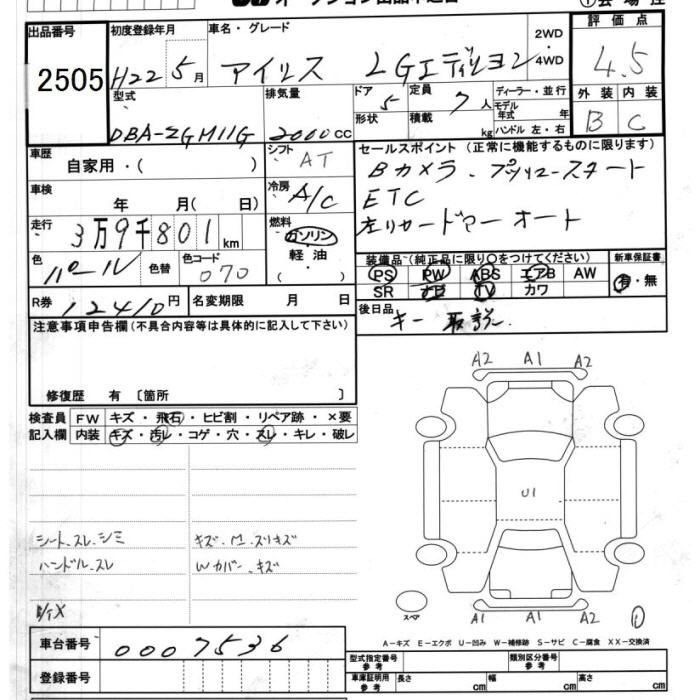 出品番号 初度登録年月 車名・グレード 2WD 評価点
2505 H22 5月 アイシス LGエディション 4WD 4.5
型式 排気量 ドア 5 定員 7人 ディーラー・並行 外装 内装
DBA-ZGM11G 2000cc 形状 積載 kg モデル年式 年 ハンドル 左・右 B C
車歴 自家用・( ) シフト AT セールスポイント (正常に機能するものに限ります)
車検 年 月( 日) 冷房 A/C Bカメラ、プッシュスタート
ETC
走行 3万9千801km 燃料 ガソリン 左リヤードアーオート
軽油
色 パール 色替 色コード 070 ・( )
装備品(純正品に限り○をつけてください) 新車保証書
PS PW ABS エアB AW 有・無
SR ナビ TV カワ
R券 12410円 名変期限 月 日 後日品 キー 取説
注意事項申告欄(不具合内容等は具体的に記入して下さい)
修復歴 有 〔箇所 〕
検査員 FW キズ・飛石・ヒビ割・リペア跡・×要
記入欄 内装 キズ・汚レ・コゲ・穴・スレ・キレ・破レ
A2 A1 A2
U1
シート、スレ、シミ
ハンドル、スレ
Wカバー、キズ
スペア A1 A1 A2
車台番号 0007536
A−キズ E−エクボ U−凹み W−補修跡 S−サビ C−腐食 XX−交換済
登録番号 型式指定番号 参考 類別区分番号 参考
車庫証明用 参考 長さ cm 幅 cm 高さ cm